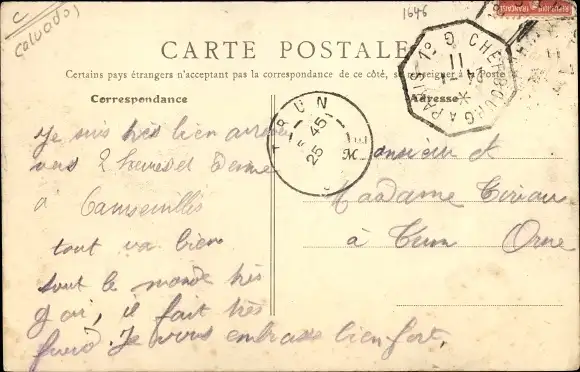 C
Calvados
1646
RÉPUBLIQUE FRANÇAISE
CARTE POSTALE
Certains pays étrangers n'acceptant pas la correspondance de ce côté, se renseigner à la Poste
Correspondance
Adresse
CHERBOURG A PARIS 1° D
11
24
TRUN
45
25
Je suis très bien arrivé
vers 2 heures et demie
à
tout va bien
tout le monde très
gai, il fait très
froid. Je vous embrasse bien fort.
Monsieur et
Madame
à Trun Orne